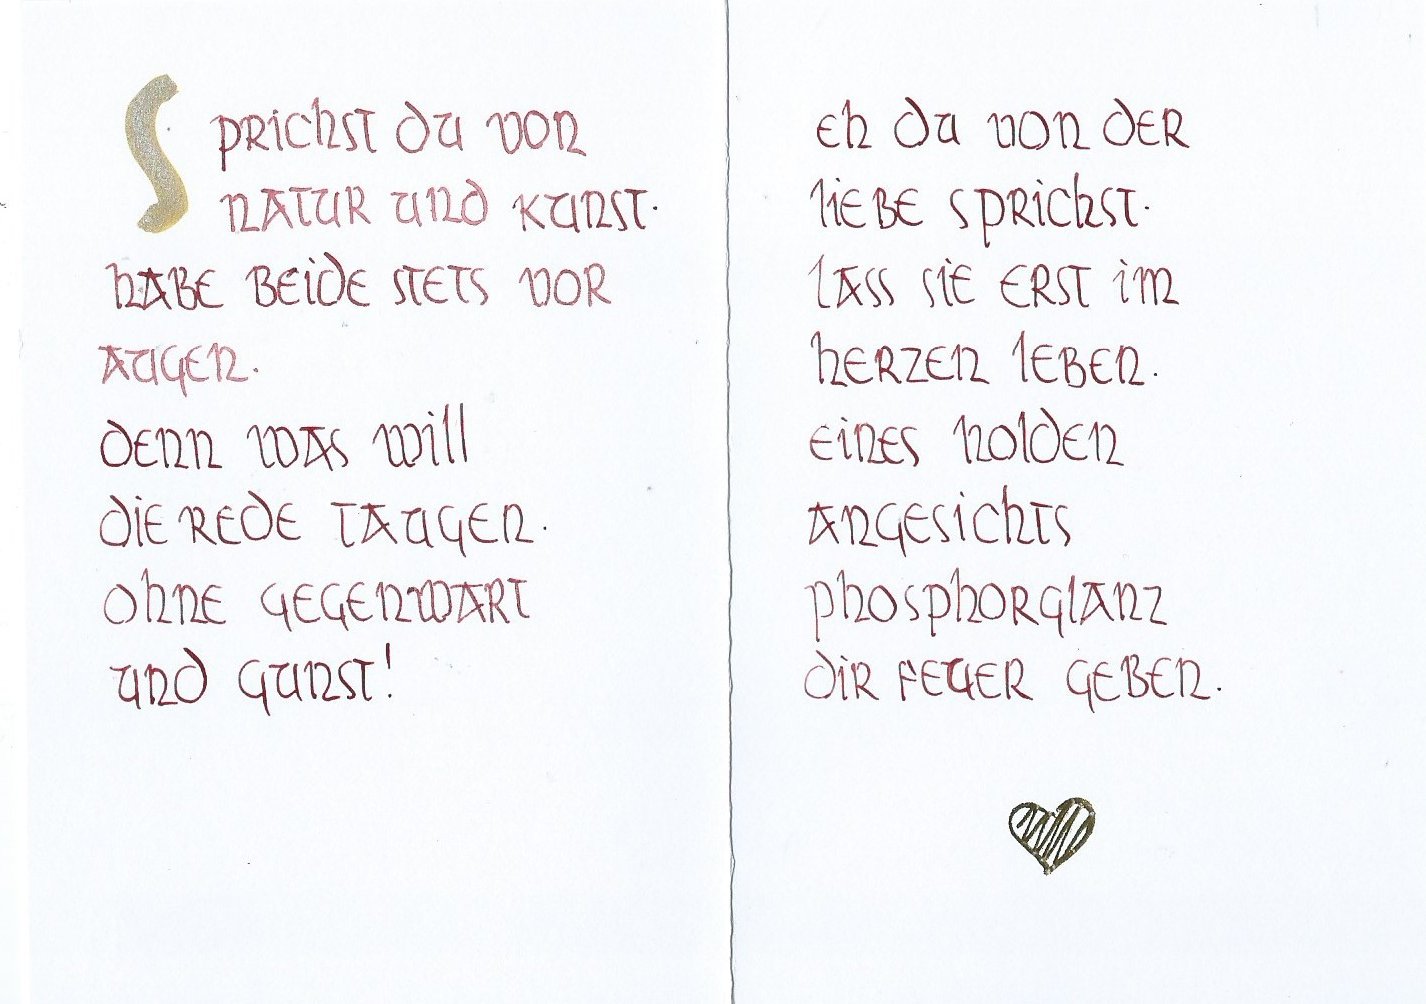 Sprichst du von
Natur und Kunst.
habe beide stets vor
Augen.
denn was will
die Rede taugen.
ohne Gegenwart
und Gunst!
eh du von der
Liebe sprichst.
lass sie erst im
Herzen leben.
eines holden
Angesichts
Phosphorglanz
dir Feuer geben.